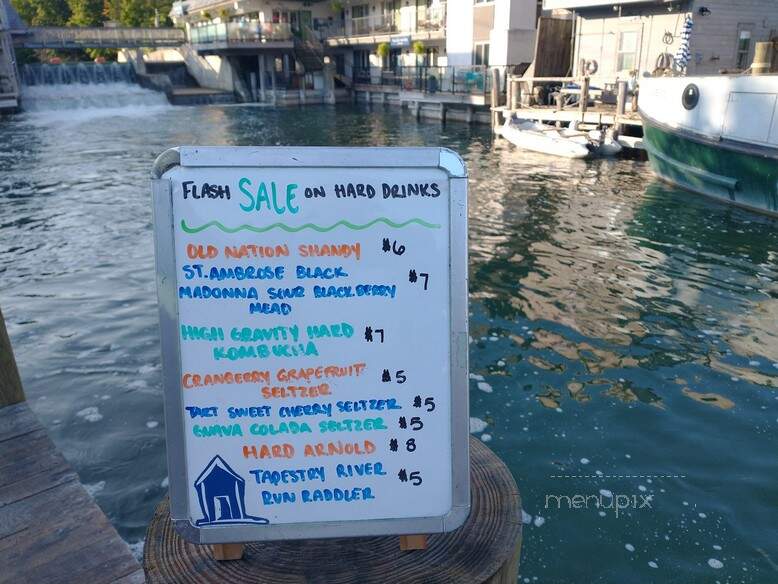 FLASH SALE ON HARD DRINKS
OLD NATION SHANDY $6
ST. AMBROSE BLACK $7
MADONNA SOUR BLACKBERRY
MEAD
HIGH GRAVITY HARD $7
KOMBUCHA
CRANBERRY GRAPEFRUIT $5
SELTZER
TART SWEET CHERRY SELTZER $5
GUAVA COLADA SELTZER $5
HARD ARNOLD $8
TAPESTRY RIVER $5
RUN RADDLER
menupix